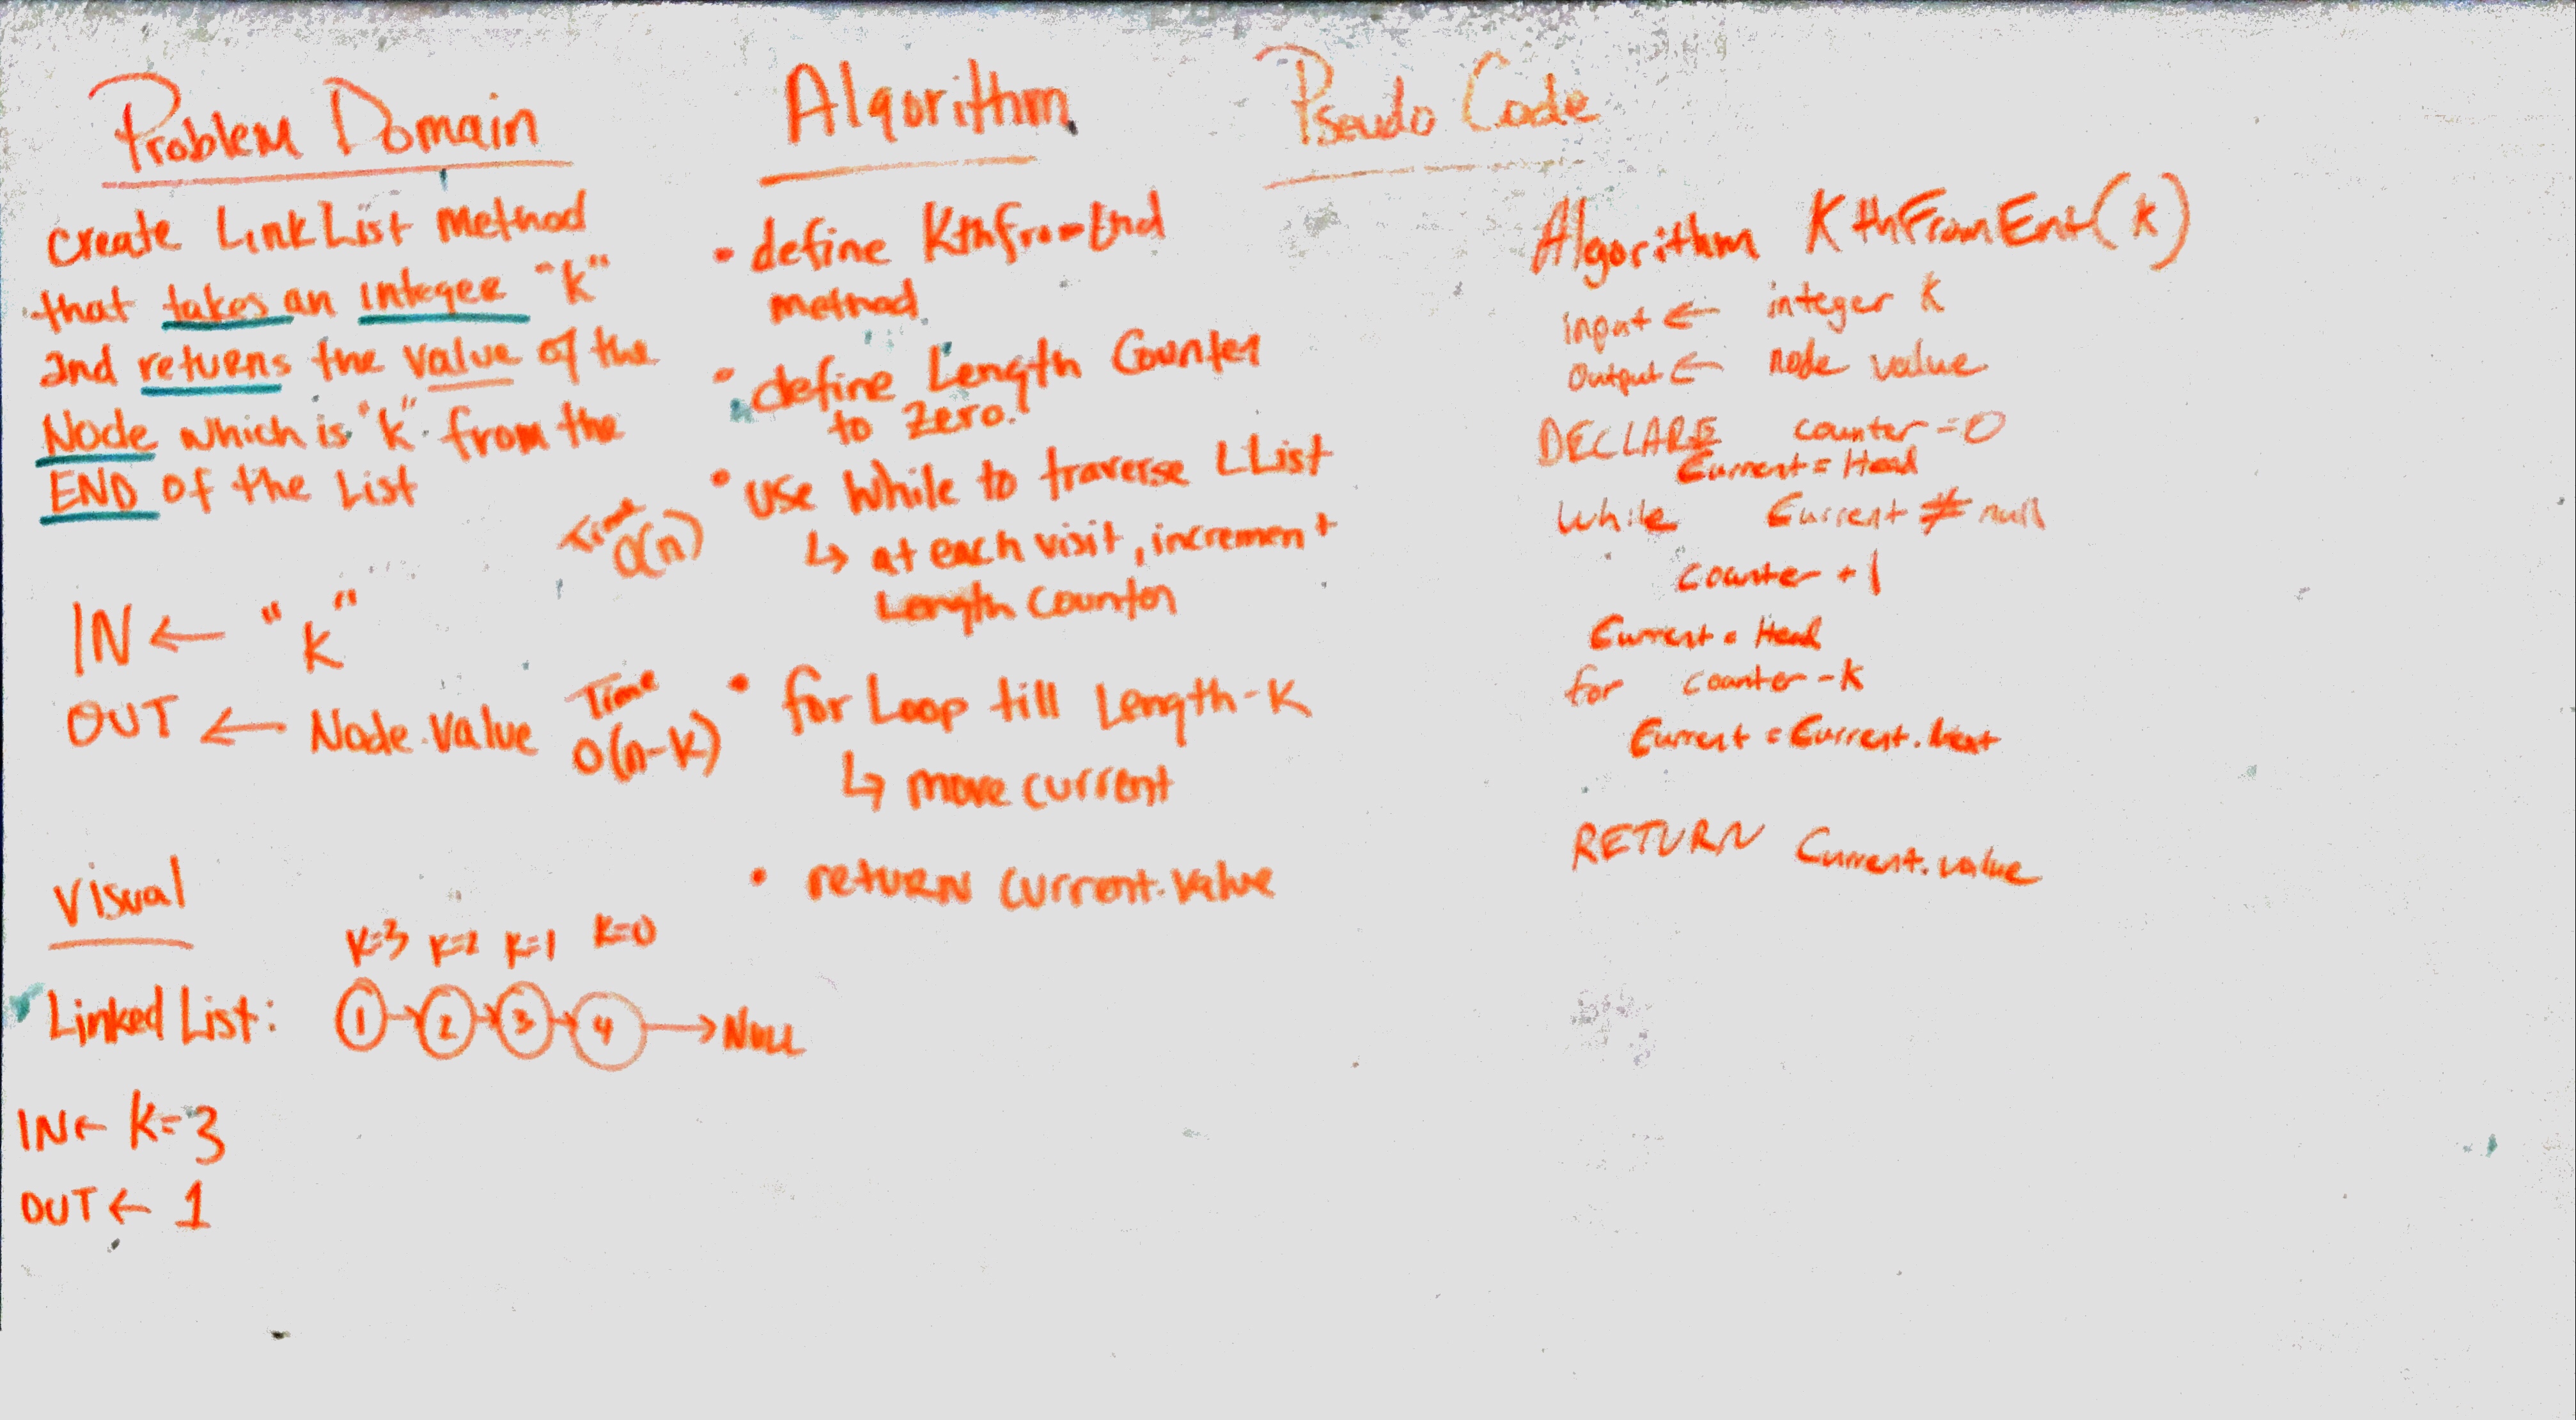 Problem Domain
create LinkList Method
that takes an integer "k"
and returns the value of the
Node which is "k" from the
END of the List
IN ← "k"
OUT ← Node.value
Visual
K=3 K=2 K=1 K=0
Linked List: 1 → 2 → 3 → 4 → NULL
IN ← K=3
OUT ← 1
Algorithm
• define KthfromEnd
method
• define Length Counter
to Zero.
Time
O(n)
• use while to traverse LList
↳ at each visit, increment
Length Counter
Time
O(n-K)
• for Loop till Length-K
↳ move current
• return current.value
Pseudo Code
Algorithm KthFromEnt(k)
input ← integer K
Output ← node value
DECLARE counter = 0
Current = Head
While Current ≠ null
counter + 1
Current = Head
for counter - K
Current = Current.Next
RETURN Current.value